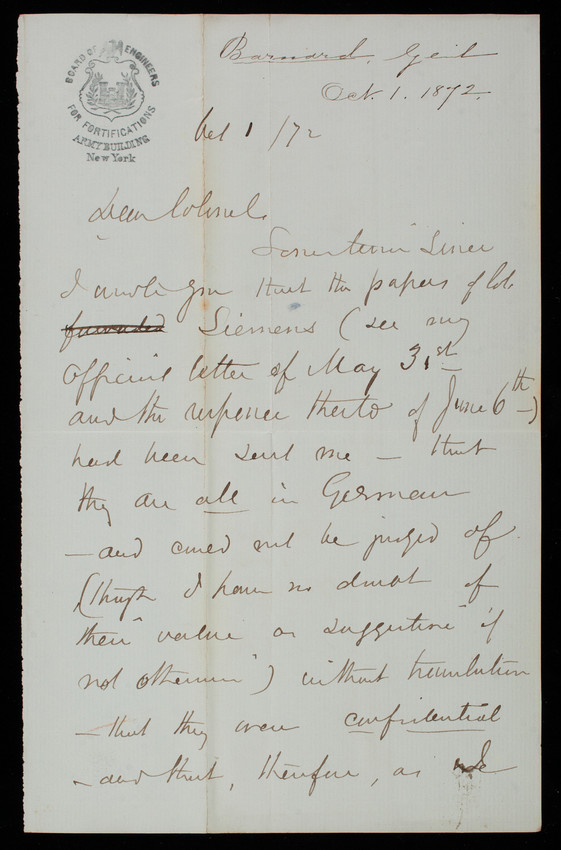 BOARD OF ENGINEERS
FOR FORTIFICATIONS
ARMY BUILDING
New York
Barnard, Genl
Oct. 1. 1872.
Oct 1 /72
Dear Colonel,
Sometime since
I wrote you that the papers of Col.
forwarded Siemens (see my
Official letter of May 31st
and the response thereto of June 6th)
had been sent me — that
they are all in German
— and could not be judged of
(though I have no doubt of
their "value as suggestive" if
not otherwise") without translation
— that they were confidential
— and that, therefore, as